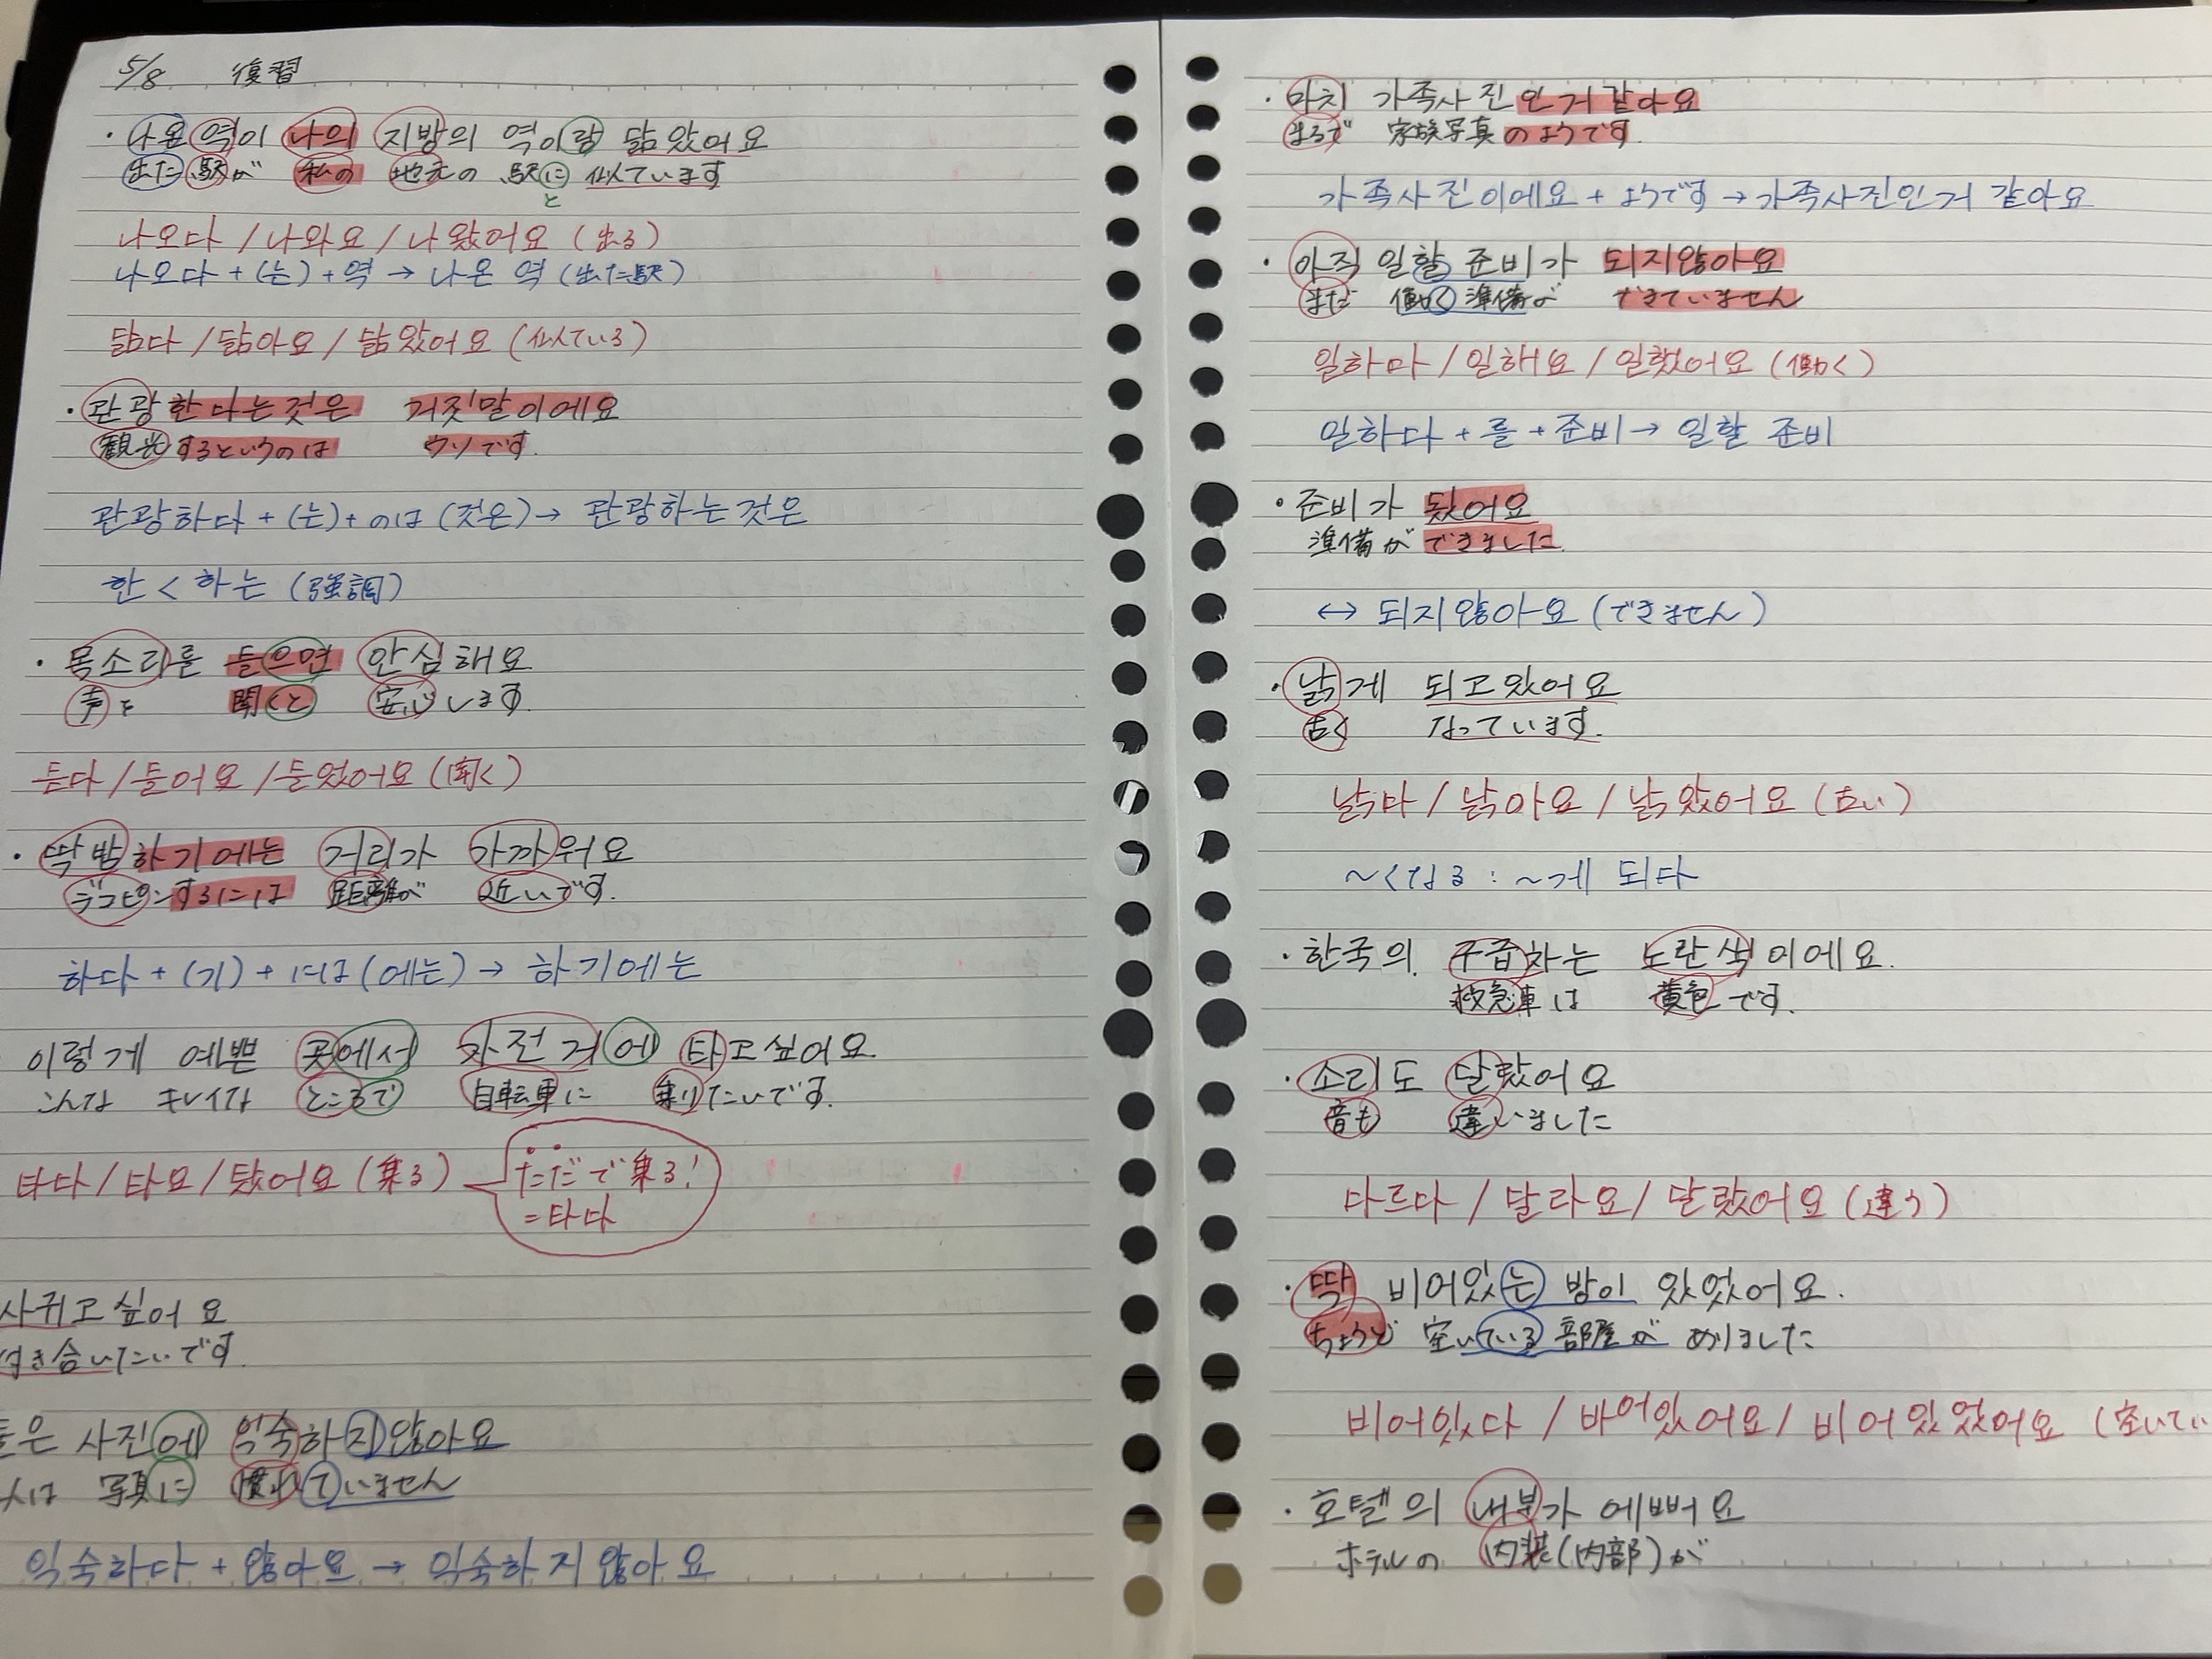 5/8 復習
・나온 역이 나의 지방의 역이랑 닮았어요
出た 駅が 私の 地元の 駅に 似ています
と
나오다 / 나와요 / 나왔어요 (出る)
나오다 + (는) + 역 → 나온 역 (出た駅)
닮다 / 닮아요 / 닮았어요 (似ている)
・관광한다는것은 거짓말이에요
観光するというのは ウソです.
관광하다 + (는) + のは (것은) → 관광하는것은
한 < 하는 (強調)
・목소리를 들으면 안심해요
声を 聞くと 安心します.
듣다 / 들어요 / 들었어요 (聞く)
・딱밤하기에는 거리가 가까워요
デコピンするには 距離が 近いです.
하다 + (기) + には (에는) → 하기에는
이렇게 예쁜 곳에서 자전거에 타고싶어요.
こんな キレイな ところで 自転車に 乗りたいです.
타다 / 타요 / 탔어요 (乗る)
ただで乗る!
=타다
사귀고싶어요
付き合いたいです.
은 사진에 익숙하지않아요
人は 写真に 慣れていません
익숙하다 + 않아요 → 익숙하지않아요
・마치 가족사진인거같아요
まるで 家族写真のようです.
가족사진이에요 + ようです → 가족사진인거 같아요
・아직 일할 준비가 되지않아요
まだ 働く 準備が できていません
일하다 / 일해요 / 일했어요 (働く)
일하다 + 를 + 준비 → 일할 준비
・준비가 됐어요
準備ができました.
↔ 되지않아요 (できません)
・낡게 되고있어요
古く なっています.
낡다 / 낡아요 / 낡았어요 (古い)
～くなる : ～게 되다
・한국의 구급차는 노란색이에요.
救急車は 黄色です.
・소리도 달랐어요
音も 違いました
다르다 / 달라요 / 달랐어요 (違う)
・딱 비어있는 방이 있었어요.
ちょうど 空いている 部屋が ありました
비어있다 / 비어있어요 / 비어있었어요 (空いてい
・호텔의 내부가 예뻐요
ホテルの 内装(内部)が